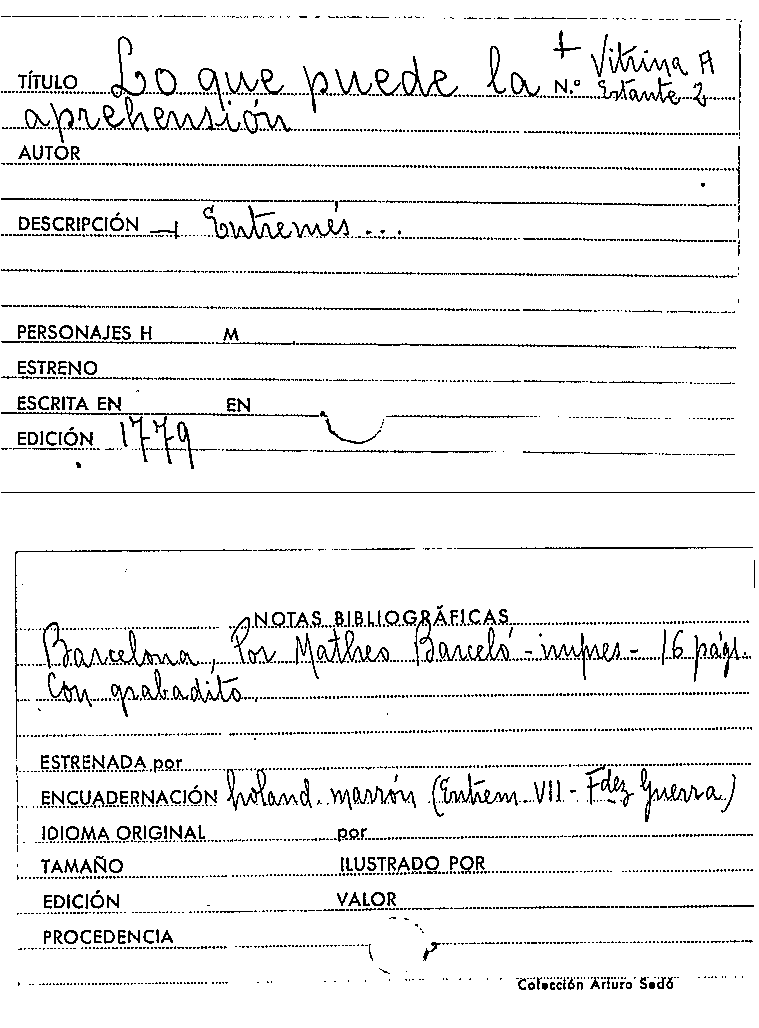 TÍTULO Lo que puede la N.º + Vitrina A
aprehensión Estante 2
AUTOR
DESCRIPCIÓN — Entremés...
PERSONAJES H M
ESTRENO
ESCRITA EN EN
EDICIÓN 1779
NOTAS BIBLIOGRÁFICAS
Barcelona, Por Matheo Barceló - impres - 16 págs.
Con grabadito.
ESTRENADA por
ENCUADERNACIÓN holand. marrón (Entrem. VII - Fdez Guerra)
IDIOMA ORIGINAL por
TAMAÑO ILUSTRADO POR
EDICIÓN VALOR
PROCEDENCIA
Colección Arturo Sedó